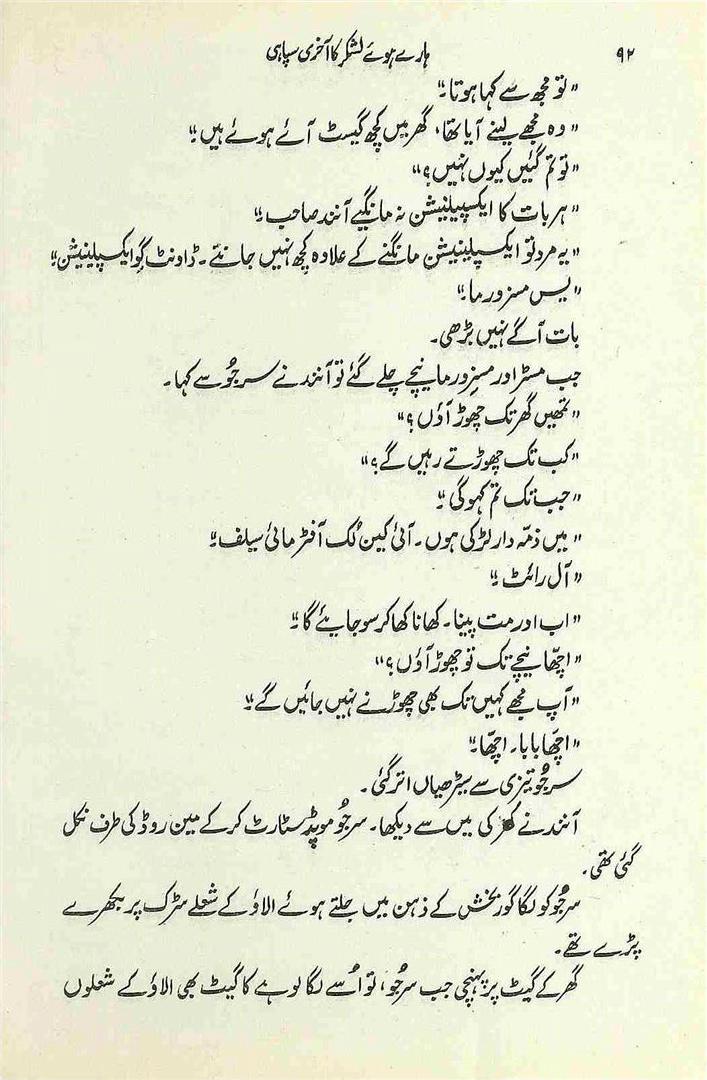 ۹۲ ہارے ہوئے لشکر کا آخری سپاہی
"تو مجھ سے کہا ہوتا۔"
"وہ مجھے لینے آیا تھا، گھر میں کچھ گیسٹ آئے ہوئے ہیں۔"
"تو تم گئیں کیوں نہیں؟"
"ہر بات کا ایکسپلینیشن نہ مانگیے آنند صاحب۔"
"یہ مرد تو ایکسپلینیشن مانگنے کے علاوہ کچھ نہیں جانتے۔ ڈاونٹ گِو ایکسپلینیشن۔"
"یس مسز ورما۔"
بات آگے نہیں بڑھی۔
جب مسٹر اور مسز ورما نیچے چلے گئے تو آنند نے سرجُو سے کہا۔
"تمھیں گھر تک چھوڑ آؤں؟"
"کب تک چھوڑتے رہیں گے؟"
"جب تک تم کہوگی۔"
"میں ذمّہ دار لڑکی ہوں۔ آئی کین لُک آفٹر مائی سیلف۔"
"آل رائٹ۔"
"اب اور مت پینا۔ کھانا کھا کر سو جائیے گا۔"
"اچھّا نیچے تک تو چھوڑ آؤں؟"
"آپ مجھے کہیں تک بھی چھوڑنے نہیں جائیں گے۔"
"اچھّا بابا۔ اچھّا۔"
سرجُو تیزی سے سیڑھیاں اتر گئی۔
آنند نے کھڑکی میں سے دیکھا۔ سرجُو موپڈ سٹارٹ کرکے مین روڈ کی طرف نکل
گئی تھی۔
سرجُو کو لگا گوربخش کے ذہن میں جلتے ہوئے الاؤ کے شعلے سڑک پر بکھرے
پڑے تھے۔
گھر کے گیٹ پر پہنچی جب سرجُو، تو اُسے لگا لوہے کا گیٹ بھی الاؤ کے شعلوں